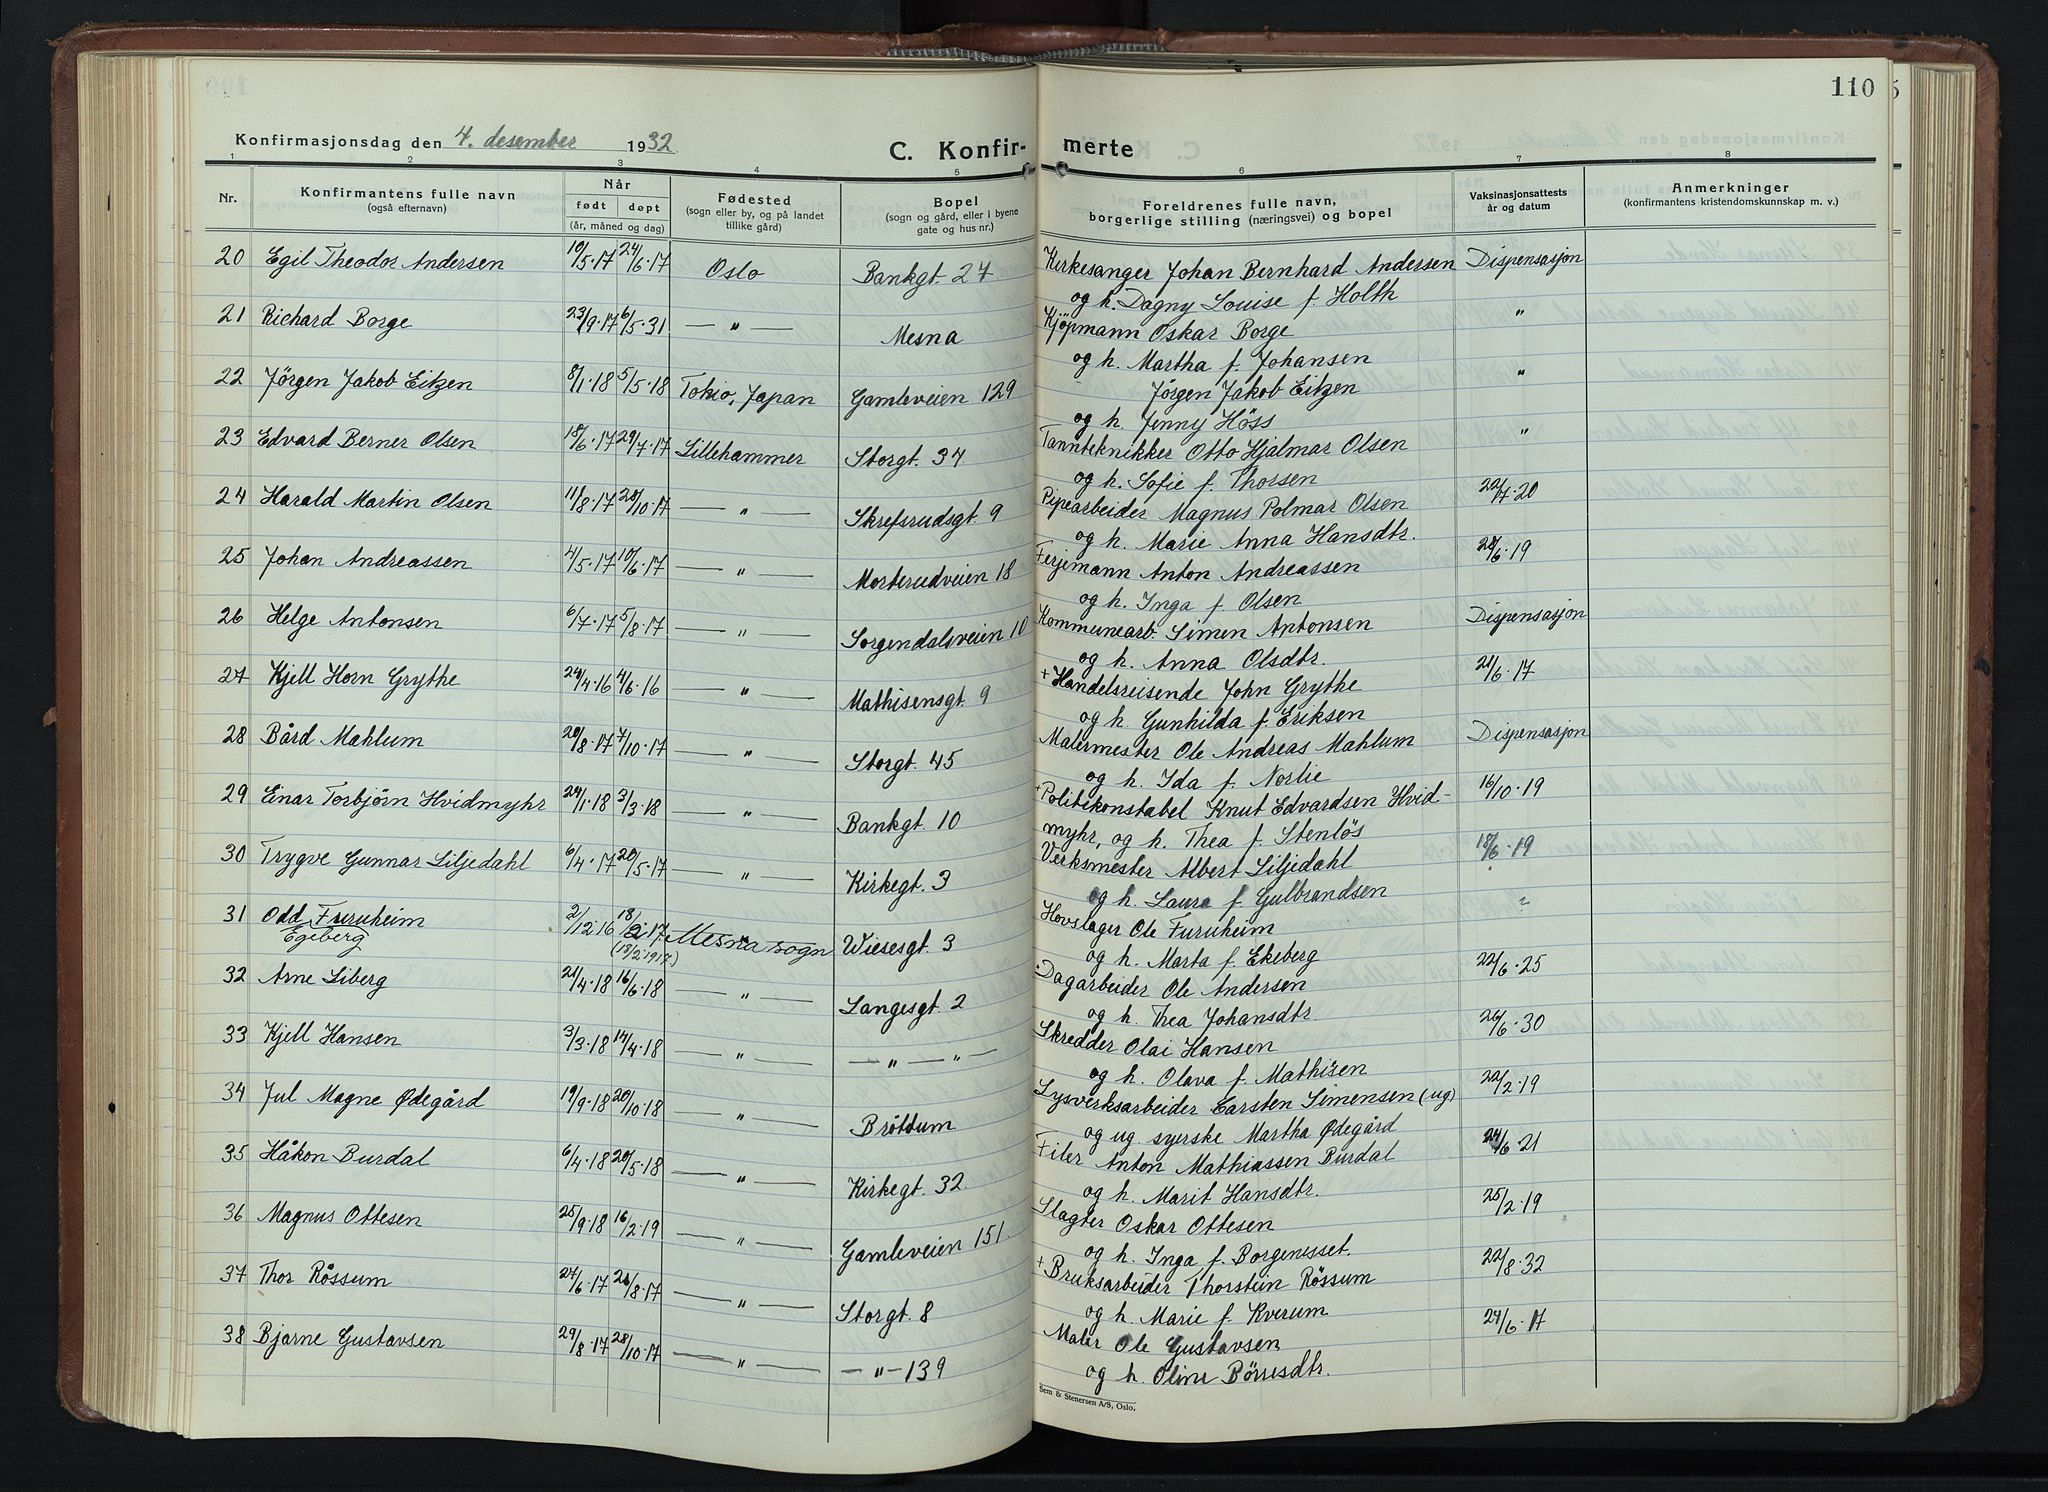 110
Konfirmasjonsdag den 4. desember 1932
C. Konfirmerte
1 2 3 4 5 6 7 8
Nr. | Konfirmantens fulle navn (også efternavn) | Når født døpt (år, måned og dag) | Fødested (sogn eller by, og på landet tillike gård) | Bopel (sogn og gård, eller i byene gate og hus nr.) | Foreldrenes fulle navn, borgerlige stilling (næringsvei) og bopel | Vaksinasjonsattests år og datum | Anmerkninger (konfirmantens kristendomskunnskap m. v.)
20 Egil Theodor Andersen 10/5·17 24/6·17 Oslo Bankgt. 27 Kirkesanger Johan Bernhard Andersen Dispensasjon
og h. Dagny Louise f. Holth
21 Richard Borge 23/9·17 6/5·31 — " — Mesna Kjöpmann Oskar Borge "
og h. Martha f. Johansen
22 Jörgen Jakob Eitzen 8/1·18 5/5·18 Tokio, Japan Gamleveien 129 Jörgen Jakob Eitzen "
og h. Jenny Höss
23 Edvard Berner Olsen 18/6·17 29/7·17 Lillehammer Storgt. 34 Tannteknikker Otto Hjalmar Olsen "
og h. Sofie f. Thorsen
24 Harald Martin Olsen 11/8·17 28/10·17 — " — Skrefsrudsgt 9 Pipearbeider Magnus Polmar Olsen 22/7·20
og h. Marie Anna Hansdtr.
25 Johan Andreassen 4/5·17 10/6·17 — " — Morterudveien 18 Ferjemann Anton Andreassen 28/6·19
og h. Inga f. Olsen
26 Helge Antonsen 6/7·17 5/8·17 — " — Sorgendalsveien 10 Kommunearb. Simen Antonsen Dispensasjon
og h. Anna Olsdtr.
27 Kjell Horn Grythe 24/4·16 4/6·16 — " — Mathisensgt. 9 + Handelsreisende John Grythe 21/6·17
og h. Gunhilda f. Eriksen
28 Bård Mæhlum 20/8·17 7/10·17 — " — Storgt. 45 Malermester Ole Andreas Mæhlum Dispensasjon
og h. Ida f. Norlie
29 Einar Torbjörn Hvidmyhr 24/1·18 3/3·18 — " — Bankgt. 10 + Politikonstabel Knut Edvardsen Hvid- 16/10·19
myhr, og h. Thea f. Stenlös
30 Trygve Gunnar Liljedahl 6/4·17 20/5·17 — " — Kirkegt. 3 Verksmester Albert Liljedahl 18/6·19
og h. Laura f. Gulbrandsen
31 Odd Furuheim 2/12·16 18/2·17 Mesna sogn Wiesesgt. 3 Hovslager Ole Furuheim ?
Egeberg (18/2·1917)
og h. Marta f. Ekeberg
32 Arne Liberg 21/4·18 16/6·18 — " — Langesgt. 2 Dagarbeider Ole Andersen 22/6·25
og h. Thea Johansdtr.
33 Kjell Hansen 3/3·18 14/4·18 — " — — " — " — Skredder Olai Hansen 26/6·30
og h. Olava f. Mathisen
34 Jul Magne Ødegård 19/9·18 20/10·18 — " — Bröttum Lysverksarbeider Carsten Simensen (ug) 22/2·19
og ug. syerske Martha Ødegård
35 Håkon Burdal 6/4·18 20/5·18 — " — Kirkegt. 32 Filer Anton Mathiassen Burdal 24/6·21
og h. Marit Hansdtr.
36 Magnus Ottesen 25/9·18 16/2·19 — " — Gamleveien 151. Slagter Oskar Ottesen 25/2·19
og h. Inga f. Borgenesset.
37 Thor Rössum 27/6·17 26/8·17 — " — Storgt. 8 + Bruksarbeider Thorstein Rössum 22/8·32
og h. Marie f. Kverum
38 Bjarne Gustavsen 29/8·17 28/10·17 — " — — " — 139 Maler Ole Gustavsen 24/6·17
og h. Oline Börresdtr.
Sem & Stenersen A/S, Oslo.